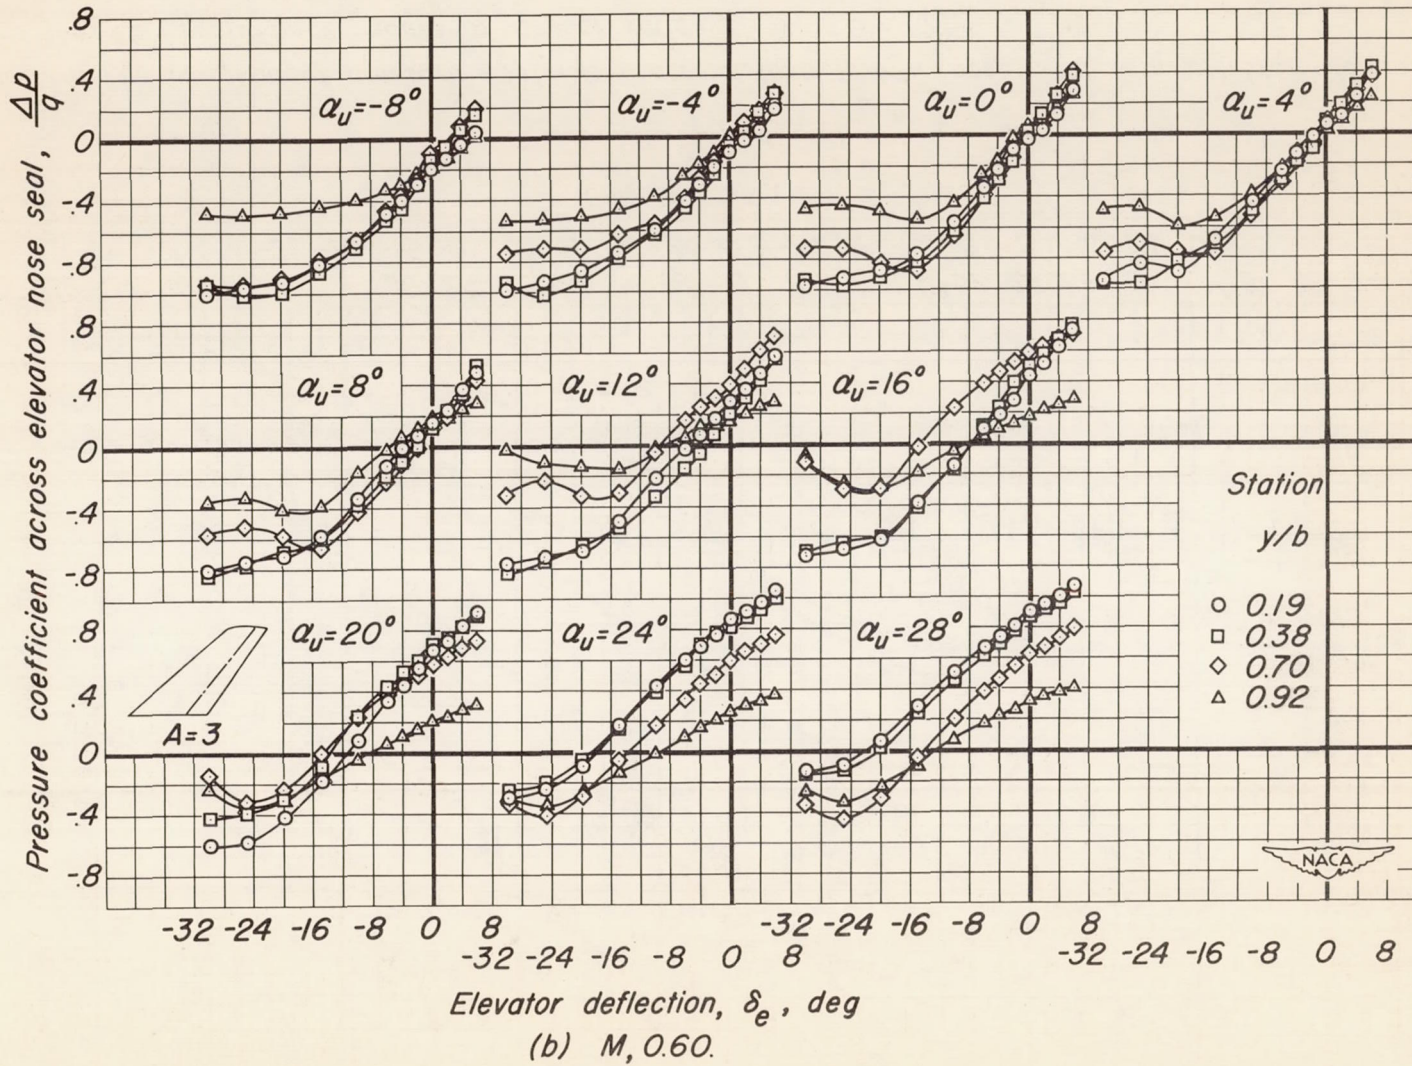 Pressure coefficient across elevator nose seal, Δp/q
.8
.4
0
-.4
-.8
.8
.4
0
-.4
-.8
.8
.4
0
-.4
-.8
αu=-8°
αu=-4°
αu=0°
αu=4°
αu=8°
αu=12°
αu=16°
Station
y/b
○ 0.19
□ 0.38
◇ 0.70
△ 0.92
αu=20°
αu=24°
αu=28°
A=3
NACA
-32 -24 -16 -8 0 8
-32 -24 -16 -8 0 8
-32 -24 -16 -8 0 8
-32 -24 -16 -8 0 8
Elevator deflection, δe, deg
(b) M, 0.60.